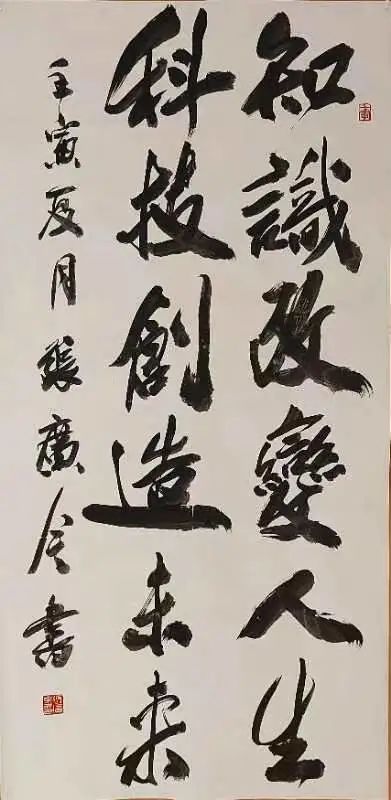 知識改變人生
科技創造未來
壬寅夏月張廣合書